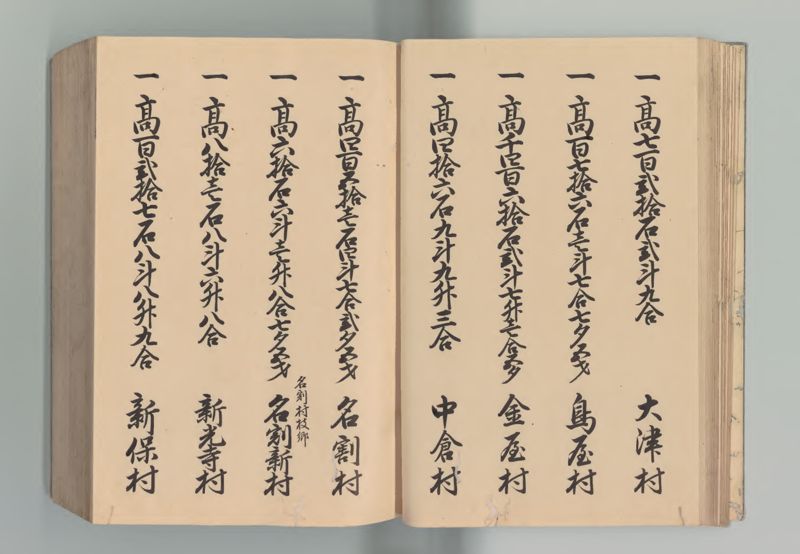 一 高七百弐拾石弐斗九合 大津村
一 高百七拾六石壱斗七合七夕五才 鳥屋村
一 高千四百六拾石弐斗七升壱合五夕 金屋村
一 高四拾六石九斗九升三合 中倉村
一 高四百五拾壱石四斗七合弐夕五才 名割村
名割村枝郷
一 高六拾石六斗壱升八合七夕五才 名割新村
一 高八拾壱石八斗六升八合 新光寺村
一 高百弐拾七石八斗八升九合 新保村